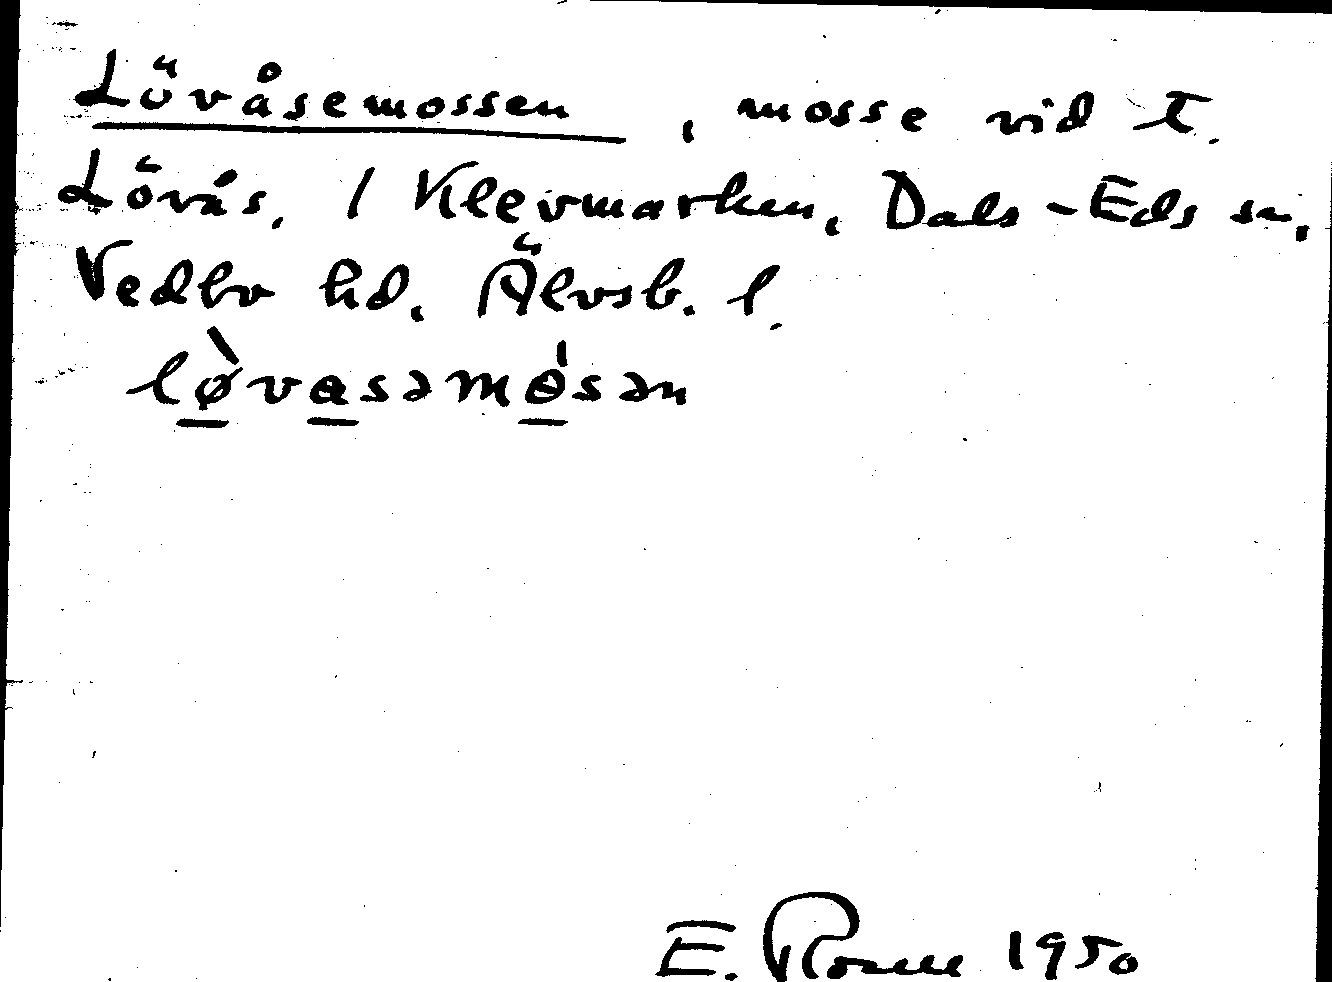 Lövåsemossen, mosse vid t.
Lövås, / Klevmarken, Dals-Eds sn,
Vedbo hd, Älvsb. l.
lø̀vasəmósən
E. Rosell 1950